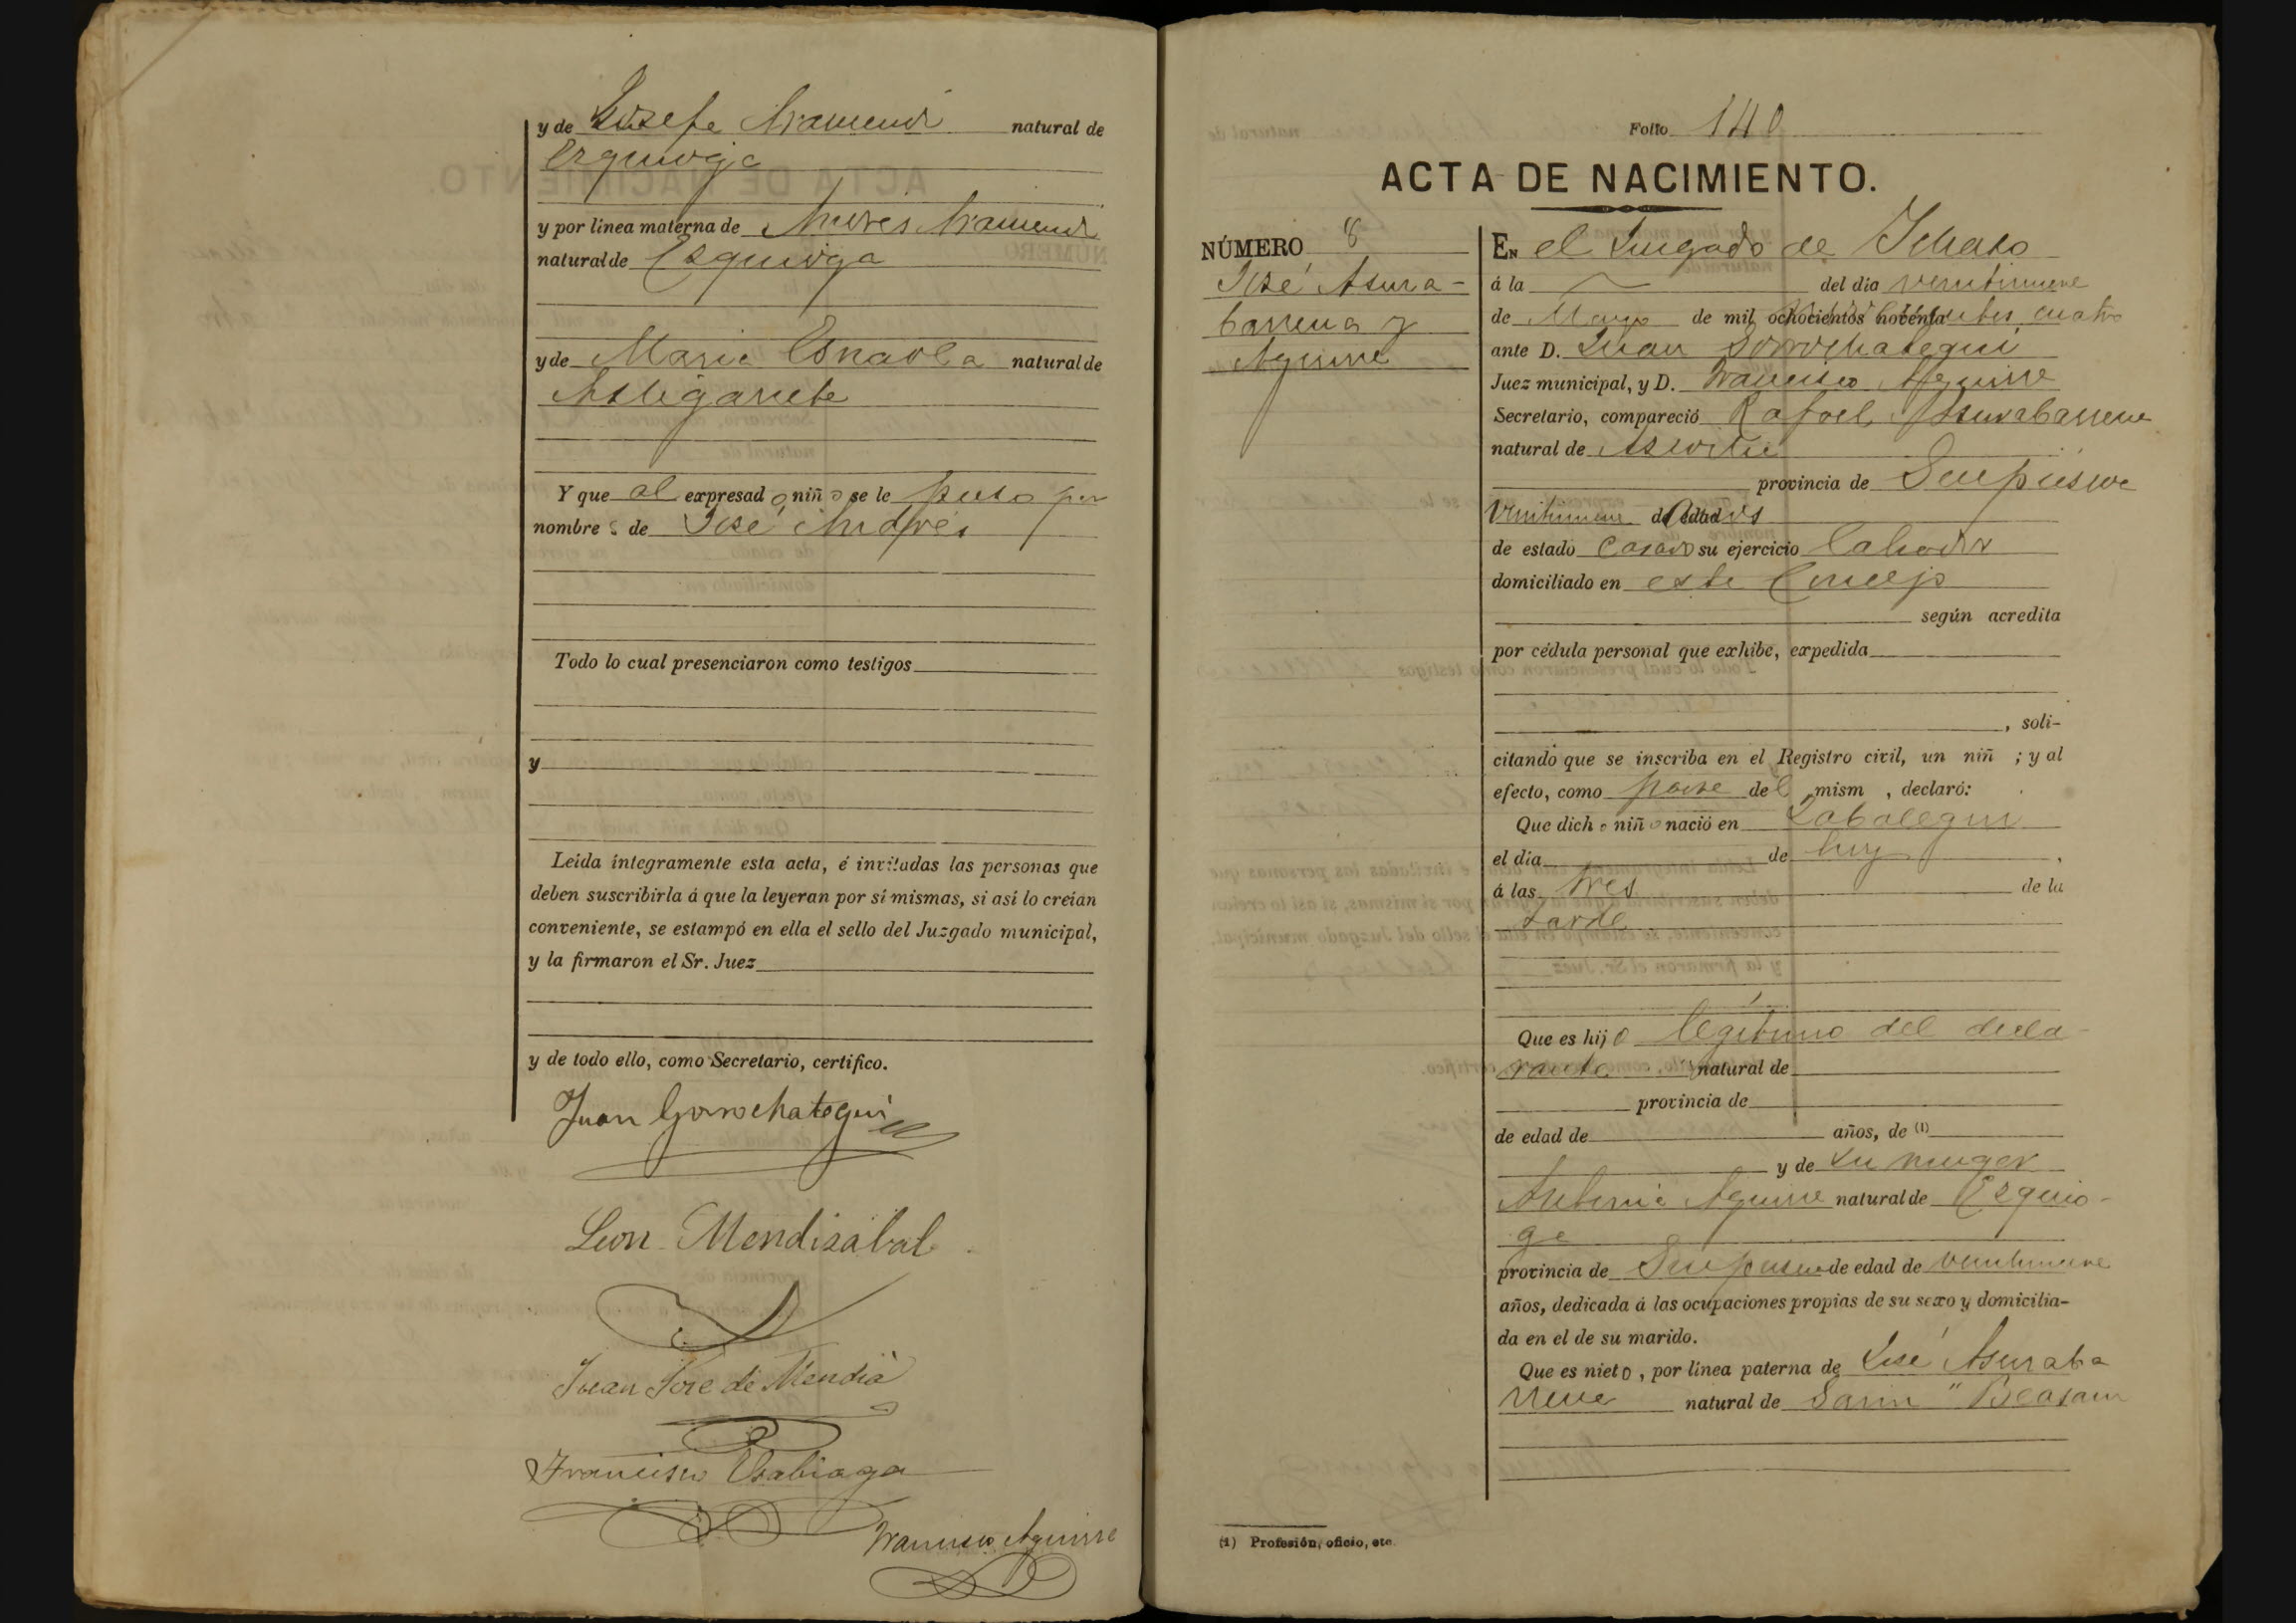 y de Josefa Aramendi natural de
Ezquioga
y por linea materna de Andrés Aramendi
natural de Ezquioga
y de Maria Esnaola natural de
Astigarreta
Y que al expresad o niñ o se le puso por
nombre s de José Andrés
Todo lo cual presenciaron como testigos
y
Leida íntegramente esta acta, é invitadas las personas que
deben suscribirla á que la leyeran por sí mismas, si así lo creian
conveniente, se estampó en ella el sello del Juzgado municipal,
y la firmaron el Sr. Juez
y de todo ello, como Secretario, certifico.
Juan Gorrochategui
Leon Mendizabal
Juan Jose de Mendia
Francisco Usabiaga
Francisco Aguirre
Folio 140
ACTA DE NACIMIENTO.
NÚMERO 8
José Asura-
barrena y
Aguirre
EN el Juzgado de Ichaso
á la del dia veintinueve
de Mayo de mil ochocientos noventa cuatro
ante D. Juan Gorrochategui
Juez municipal, y D. Francisco Aguirre
Secretario, compareció Rafael Asurabarrena
natural de Azcoitia
provincia de Guipúzcoa
veintinueve de edad
de estado casado su ejercicio labrador
domiciliado en este Concejo
según acredita
por cédula personal que exhibe, expedida
, soli-
citando que se inscriba en el Registro civil, un niñ ; y al
efecto, como padre del mism , declaró:
Que dich o niñ o nació en
el dia de hoy ,
á las tres de la
tarde
Que es hij o legítimo del decla-
rante natural de
provincia de
de edad de años, de (1)
y de su muger
Antonia Aguirre natural de Ezquio-
ga
provincia de Guipuzcoa de edad de veintinueve
años, dedicada á las ocupaciones propias de su sexo y domicilia-
da en el de su marido.
Que es niet o , por linea paterna de José Asuraba
rrena natural de Beasain
(1) Profesión, oficio, etc.